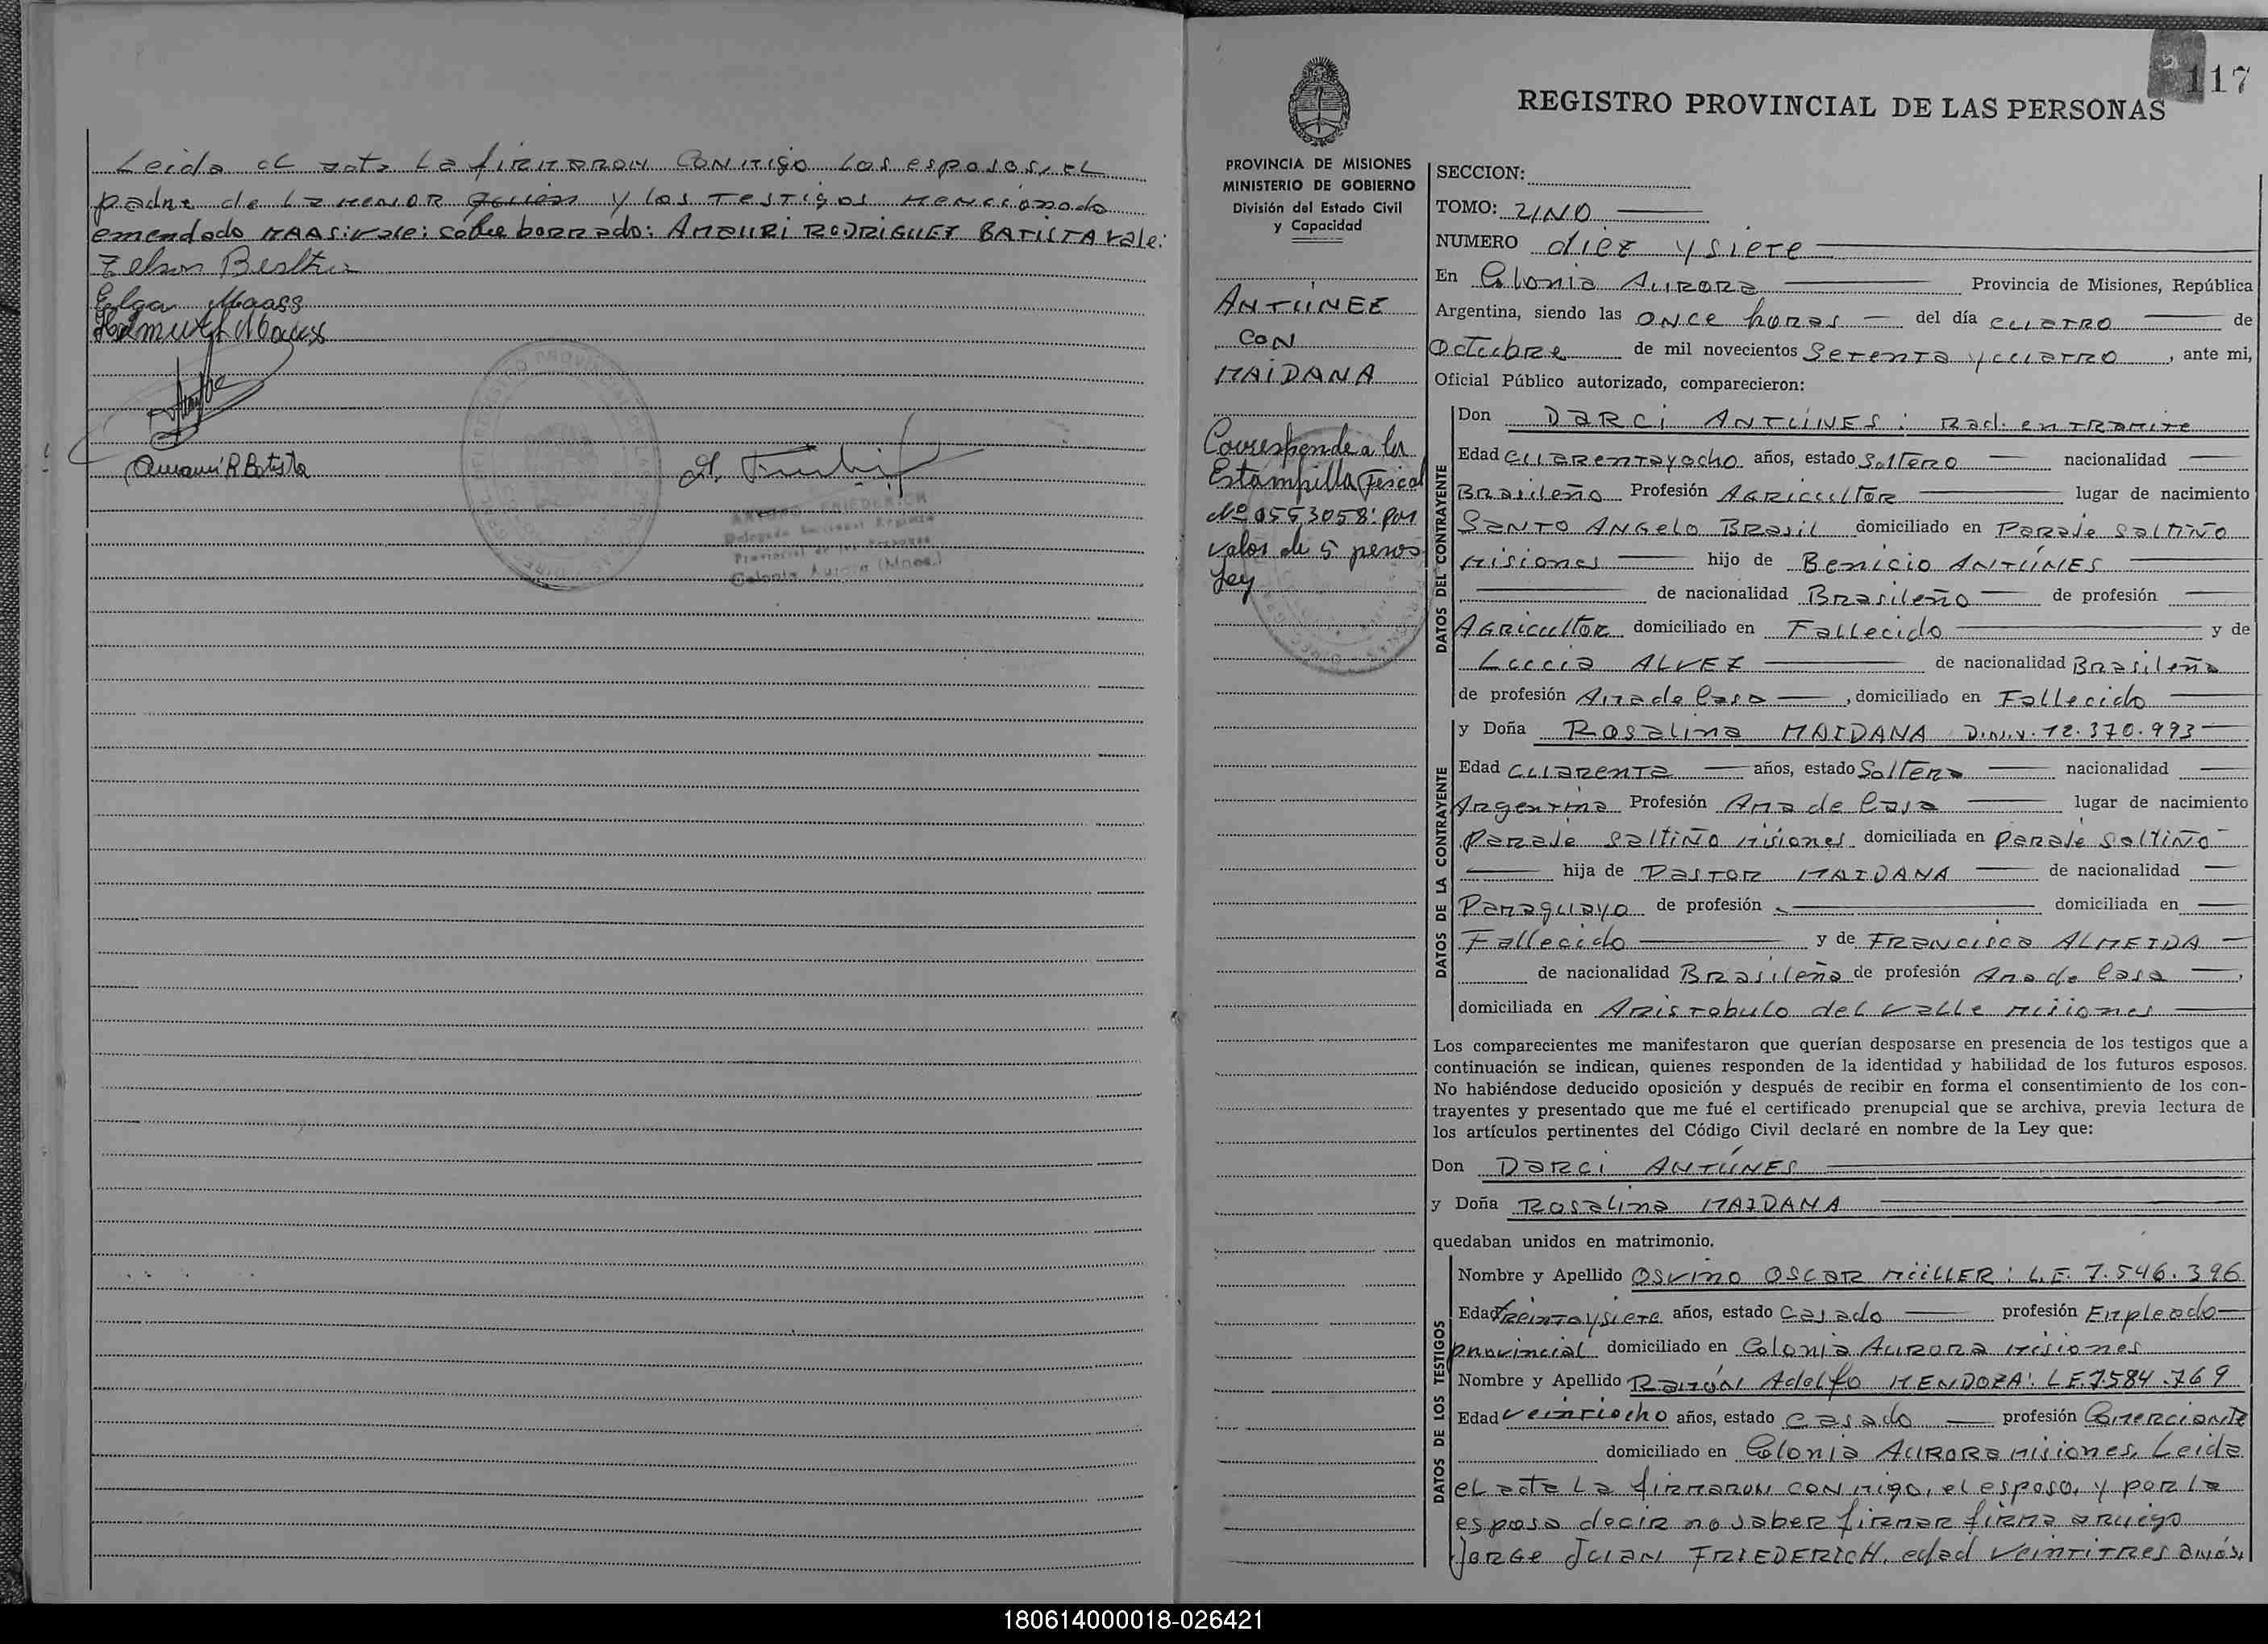 Leida el acta la firmaron conmigo los esposos, el
padre de la menor quien y los testigos mencionado
emendado MAAS: vale: sobre borrado: AMAURI RODRIGUEZ BATISTA vale:
Elga Maass
Helmuth Maass
Amauri R Batista
Delegado Seccional Registro
Provincial de las Personas
Colonia Aurora (Mnes.)
117
REGISTRO PROVINCIAL DE LAS PERSONAS
PROVINCIA DE MISIONES
MINISTERIO DE GOBIERNO
División del Estado Civil
y Capacidad
ANTUNEZ
CON
MAIDANA
Corresponde a la
Estampilla Fiscal
Nº 0553058: por
valor de 5 pesos
Ley
SECCION:
TOMO: UNO
NUMERO diez y siete
En Colonia Aurora Provincia de Misiones, República
Argentina, siendo las once horas del día cuatro de
Octubre de mil novecientos setenta y cuatro, ante mi,
Oficial Público autorizado, comparecieron:
DATOS DEL CONTRAYENTE
Don Darci ANTÚNES: Rad. en tramite
Edad cuarenta y ocho años, estado soltero nacionalidad
Brasileño Profesión Agricultor lugar de nacimiento
Santo Angelo Brasil domiciliado en Paraje Saltiño
Misiones hijo de Benicio ANTÚNES
de nacionalidad Brasileño de profesión
Agricultor domiciliado en Fallecido y de
Lucia ALVEZ de nacionalidad Brasileña
de profesión Ama de Casa, domiciliado en Fallecido
DATOS DE LA CONTRAYENTE
y Doña Rosalina MAIDANA D.N.I. 12.370.993
Edad cuarenta años, estado Soltera nacionalidad
Argentina Profesión Ama de Casa lugar de nacimiento
Paraje Saltiño Misiones domiciliada en Paraje Saltiño
hija de Pastor MAIDANA de nacionalidad
Paraguayo de profesión domiciliada en
Fallecido y de Francisca ALMEIDA
de nacionalidad Brasileña de profesión Ama de Casa,
domiciliada en Aristobulo del Valle Misiones
Los comparecientes me manifestaron que querían desposarse en presencia de los testigos que a
continuación se indican, quienes responden de la identidad y habilidad de los futuros esposos.
No habiéndose deducido oposición y después de recibir en forma el consentimiento de los con-
trayentes y presentado que me fué el certificado prenupcial que se archiva, previa lectura de
los artículos pertinentes del Código Civil declaré en nombre de la Ley que:
Don Darci ANTÚNES
y Doña Rosalina MAIDANA
quedaban unidos en matrimonio.
DATOS DE LOS TESTIGOS
Nombre y Apellido Osvino Oscar MÜLLER: L.E. 7.546.396
Edad treinta y siete años, estado Casado profesión Empleado
provincial domiciliado en Colonia Aurora Misiones
Nombre y Apellido Ramón Adelfo MENDOZA: L.E. 7584.769
Edad veintiocho años, estado casado profesión Comerciante
domiciliado en Colonia Aurora Misiones. Leida
el acta la firmaron conmigo, el esposo, y por la
esposa decir no saber firmar firma a ruego
Jorge Juan FRIEDERICH, edad veintitres años,
180614000018-026421